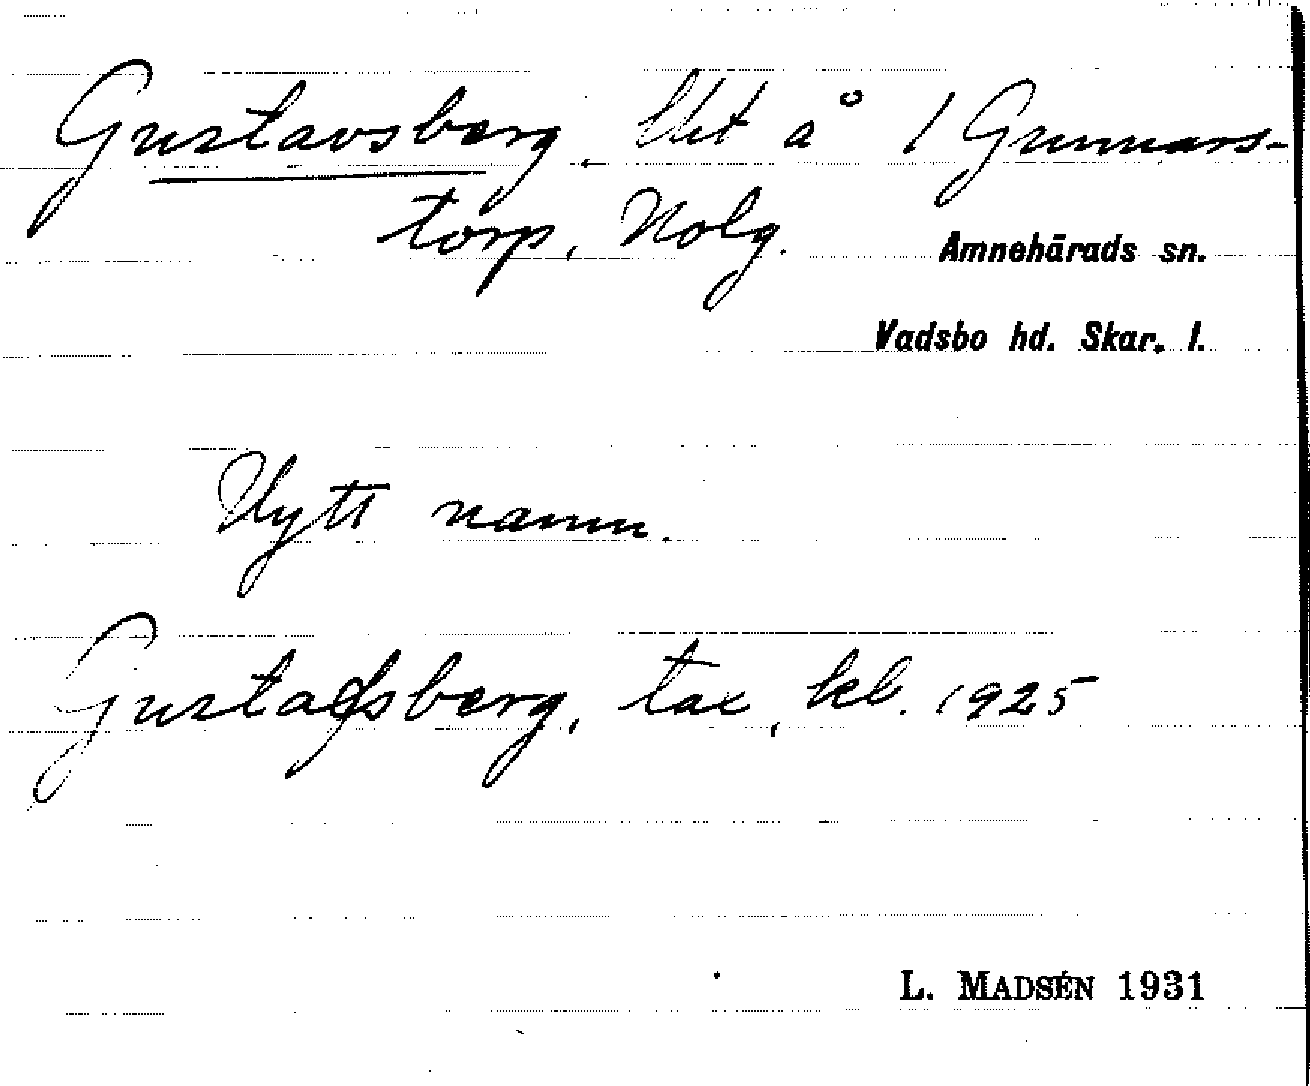 Gustavsberg, lht å 1 Gunnars-
torp, Nolg.
Amnehärads sn.
Vadsbo hd. Skar. l.
Nytt namn.
Gustafsberg, tax, kl. 1925
L. MADSÉN 1931